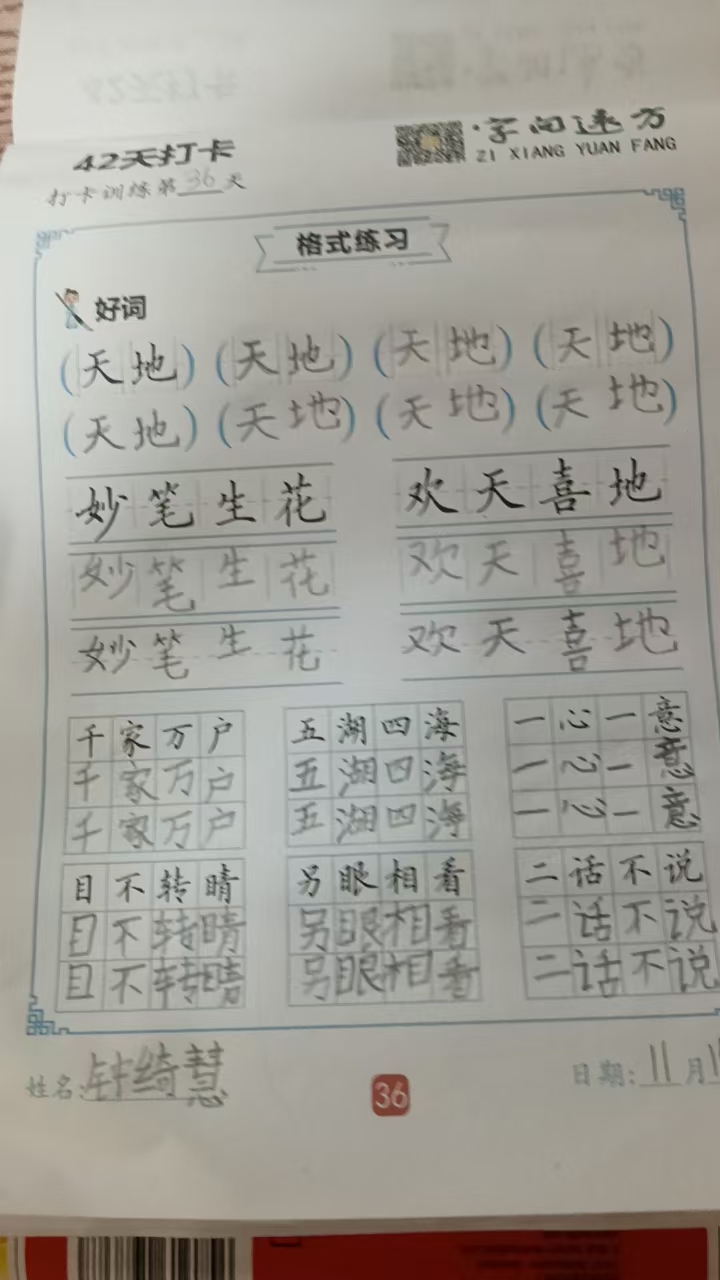 42天打卡
·字向远方
ZI XIANG YUAN FANG
打卡训练第36天
格式练习
好词
(天地) (天地) (天地) (天地)
(天地) (天地) (天地) (天地)
妙笔生花 欢天喜地
妙笔生花 欢天喜地
妙笔生花 欢天喜地
千家万户 五湖四海 一心一意
千家万户 五湖四海 一心一意
千家万户 五湖四海 一心一意
目不转睛 另眼相看 二话不说
目不转睛 另眼相看 二话不说
目不转睛 另眼相看 二话不说
姓名:钟绮慧
36
日期:11月